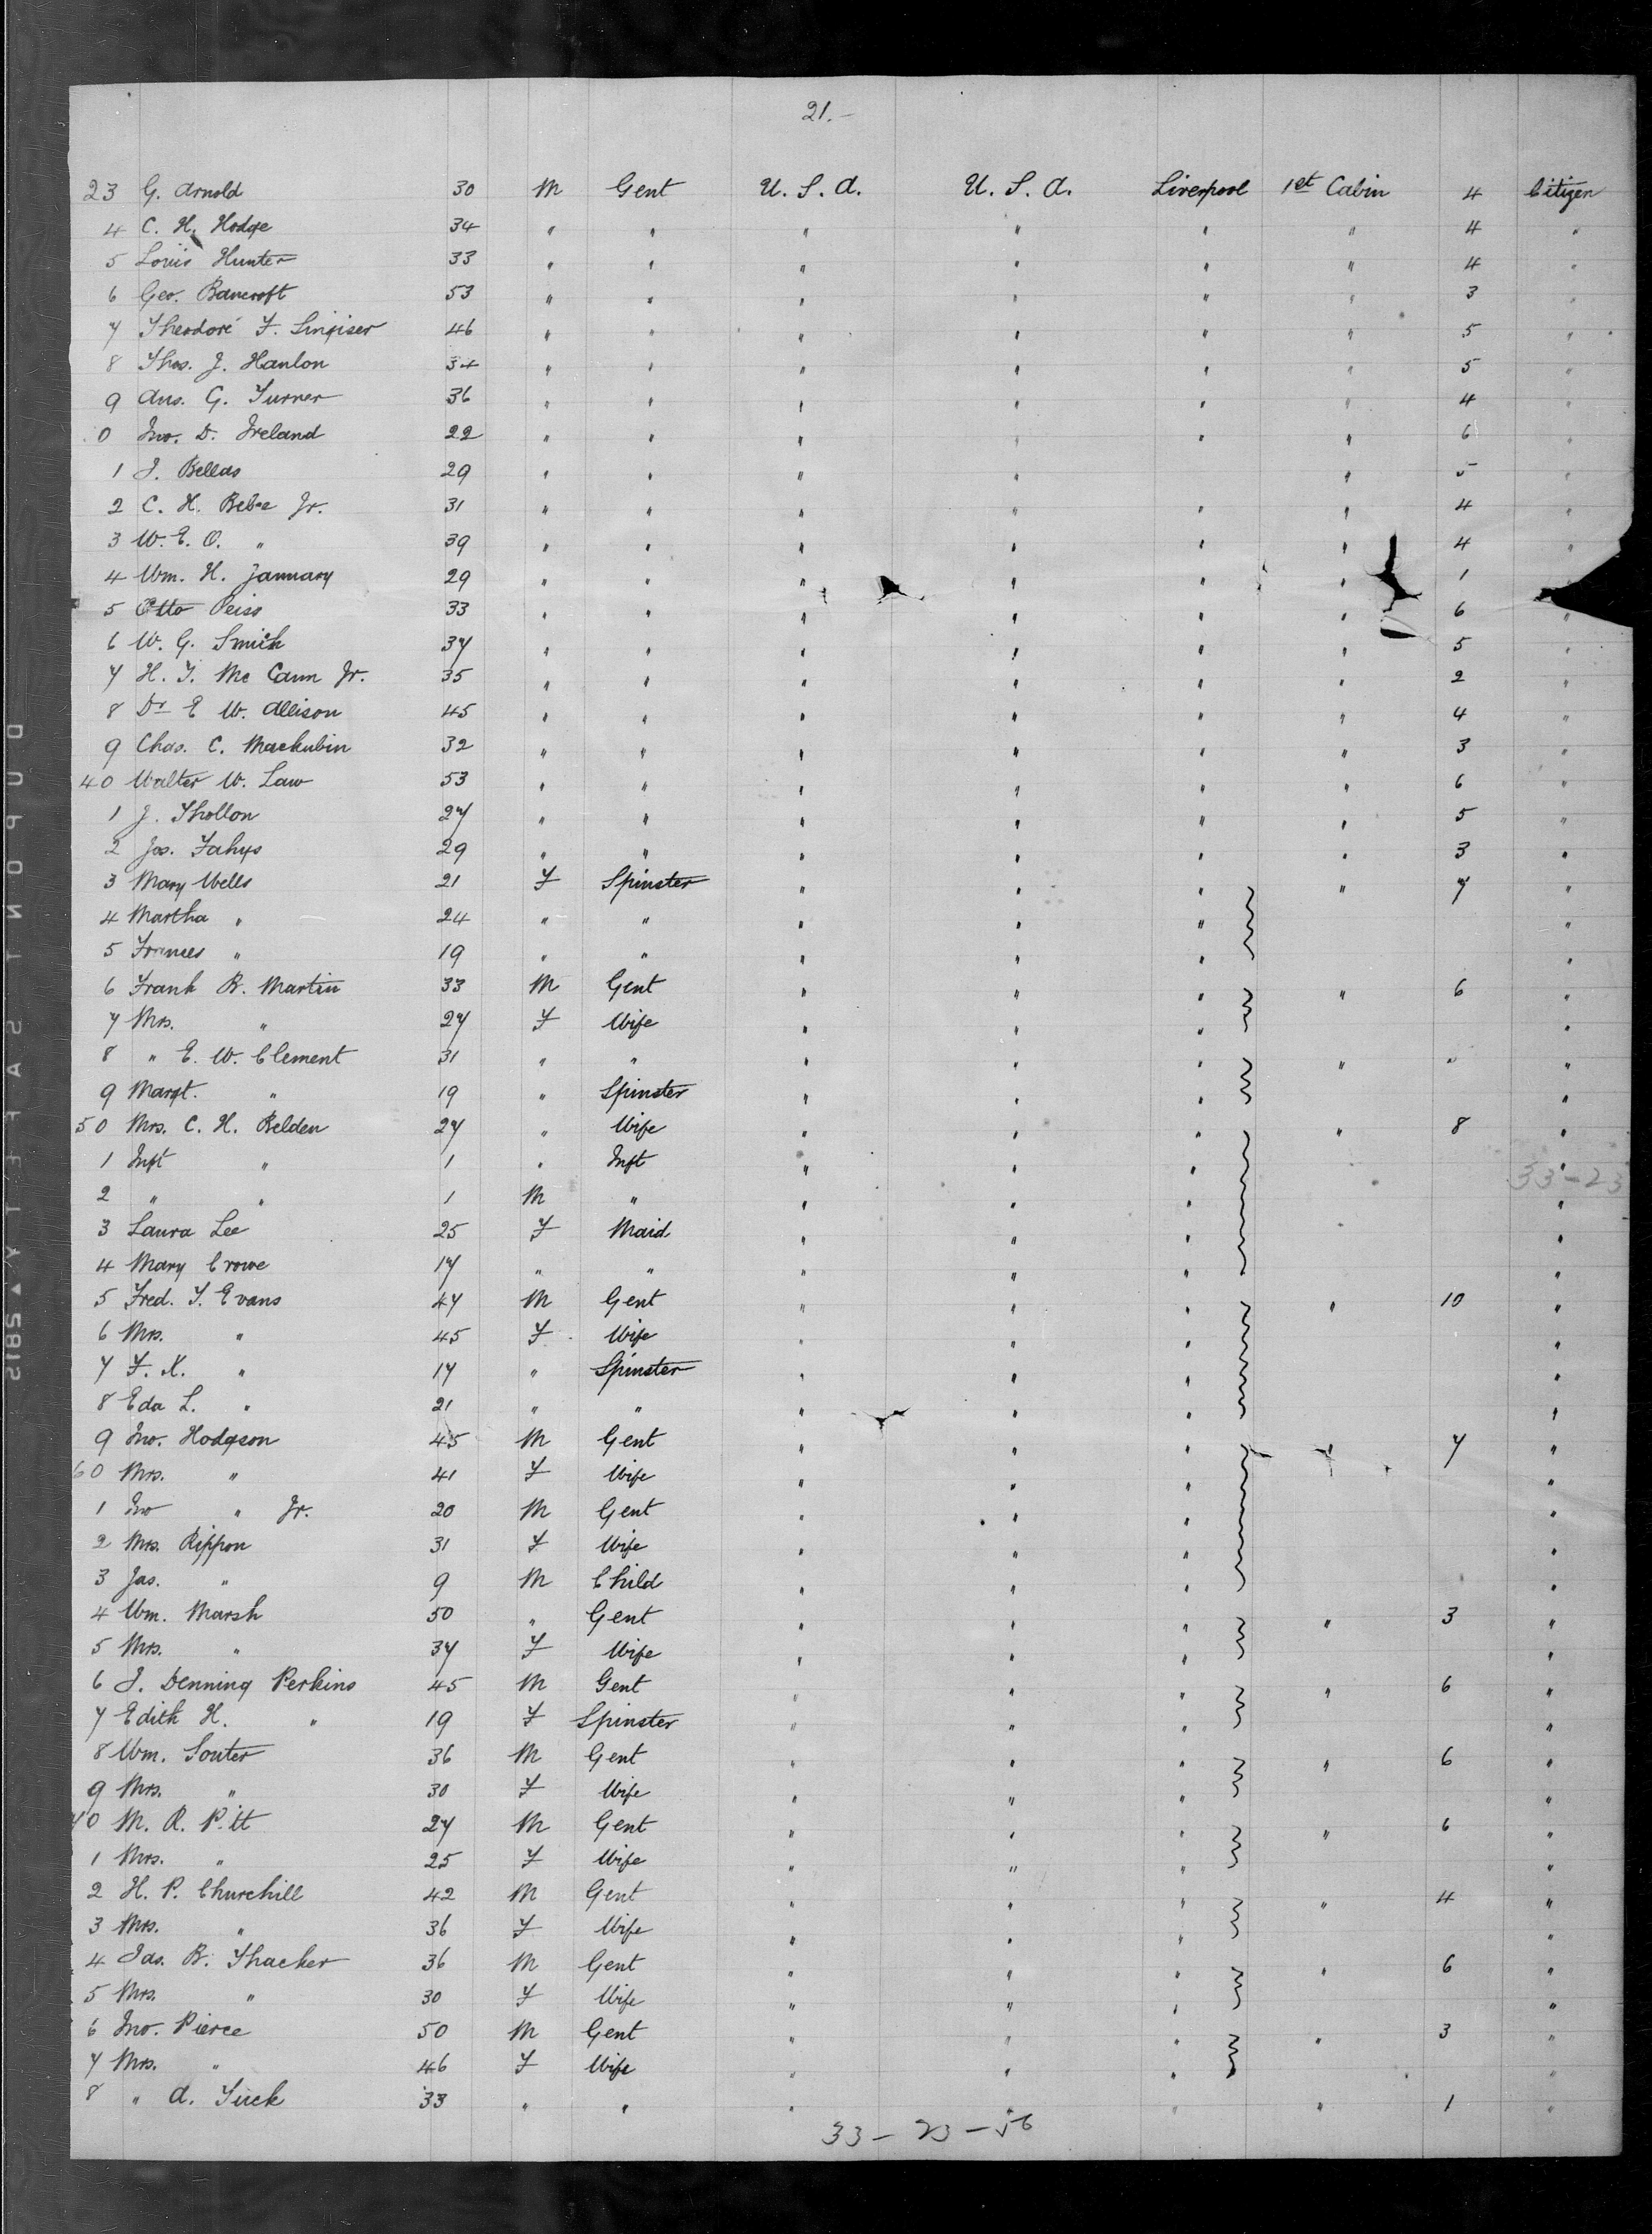 21.-
23 G. Arnold 30 M Gent U. S. A. U. S. A. Liverpool 1st Cabin 4 Citizen
4 C. H. Hodge 34 " " " " " " 4 "
5 Louis Hunter 33 " " " " " " 4 "
6 Geo. Bancroft 53 " " " " " " 3 "
7 Theodore F. Singiser 46 " " " " " " 5 "
8 Thos. J. Hanlon 34 " " " " " " 5 "
9 Aus. G. Turner 36 " " " " " " 4 "
0 Jno. D. Ireland 22 " " " " " " 6 "
1 J. Bellas 29 " " " " " 5 "
2 C. H. Bebee Jr. 31 " " " " " " 4 "
3 W. E. O. " 39 " " " " " " 4 "
4 Wm. H. January 29 " " " " " " 1 "
5 Otto Peiss 33 " " " " " " 6 "
6 W. G. Smith 37 " " " " " " 5 "
7 H. T. Mc Cann Jr. 35 " " " " " " 2 "
8 Dr E W. Allison 45 " " " " " " 4 "
9 Chas. C. Mackubin 32 " " " " " " 3 "
40 Walter W. Law 53 " " " " " " 6 "
1 J. Thollon 27 " " " " " " 5 "
2 Jos. Fahys 29 " " " " " " 3 "
3 Mary Wells 21 F Spinster " " " " 7 "
4 Martha " 24 " " " " " "
5 Frances " 19 " " " " " "
6 Frank B. Martin 33 M Gent " " " " 6 "
7 Mrs. " 27 F Wife " " " "
8 " E. W. Clement 31 " " " " " " " "
9 Margt. " 19 " Spinster " " "
50 Mrs. C. H. Belden 27 " Wife " " " " 8 "
1 Inft " 1 " Inft " " " "
33-23
2 " " 1 M " " " " "
3 Laura Lee 25 F Maid " " " "
4 Mary Crowe 17 " " " " " "
5 Fred. T. Evans 47 M Gent " " " " 10 "
6 Mrs. " 45 F Wife " " " "
7 F. X. " 17 " Spinster " " " "
8 Eda L. " 21 " " " " " "
9 Jno. Hodgson 45 M Gent " " " " 7 "
60 Mrs. " 41 F Wife " " "
1 Jno " Jr. 20 M Gent " " " "
2 Mrs. Rippon 31 F Wife " " " "
3 Jas. " 9 M Child " " " "
4 Wm. Marsh 50 " Gent " " " " 3 "
5 Mrs. " 37 F Wife " " " "
6 J. Denning Perkins 45 M Gent " " " " 6 "
7 Edith H. " 19 F Spinster " " " "
8 Wm. Souter 36 M Gent " " " " 6 "
9 Mrs. " 30 F Wife " " " "
70 M. R. Pitt 27 M Gent " " " " 6 "
1 Mrs. " 25 F Wife " " " "
2 H. P. Churchill 42 M Gent " " " " 4 "
3 Mrs. " 36 F Wife " " " "
4 Jas. B. Thacker 36 M Gent " " " " 6 "
5 Mrs. " 30 F Wife " " " "
6 Jno. Pierce 50 M Gent " " " " 3 "
7 Mrs. " 46 F Wife " " " "
8 " A. Tuck 33 " " " " " " 1 "
33 - 23 - 56